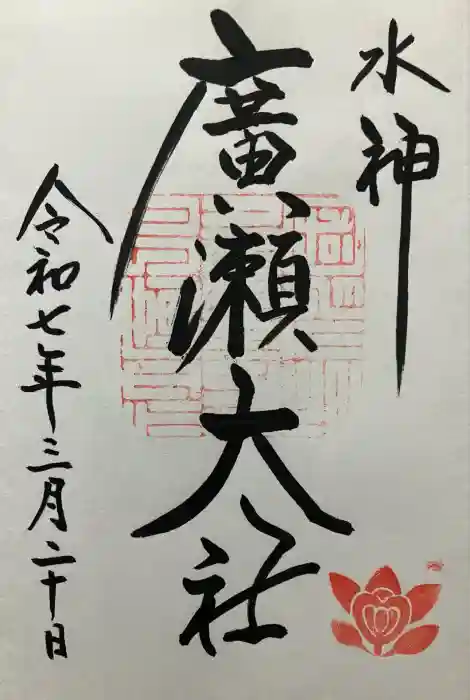 水神
廣瀬大社
令和七年三月二十日